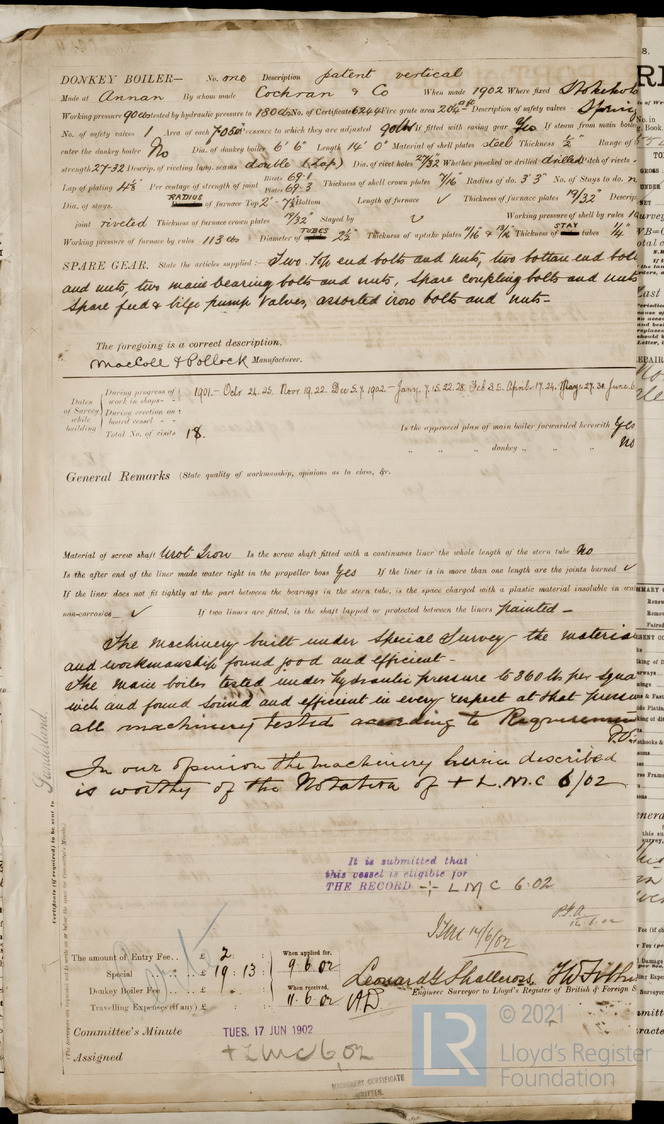 DONKEY BOILER— No. one Description patent vertical
Made at Annan By whom made Cochran & Co When made 1902 Where fixed Stokehold
Working pressure 90lbs tested by hydraulic pressure to 180lbs No. of Certificate 6244 Fire grate area Description of safety valves Spring
No. of safety valves 1 Area of each 7.06" Pressure to which they are adjusted 90lbs If fitted with easing gear Yes If steam from main boil
enter the donkey boiler No Dia. of donkey boiler 6' 6" Length 14' 0" Material of shell plates steel Thickness ½" Range of
strength 27-32 Descrip. of riveting long. seams double (Lap) Dia. of rivet holes 27/32 Whether punched or drilled drilled Pitch of rivets
Lap of plating 4⅛" Per centage of strength of joint Rivets 69.1 Plates 69.3 Thickness of shell crown plates 9/16" Radius of do. 3' 3" No. of Stays to do. n
Dia. of stays. RADIUS of furnace Top 2' - 7⅞" Bottom Length of furnace ✓ Thickness of furnace plates 19/32" Descrip
joint riveted Thickness of furnace crown plates 19/32" Stayed by ✓ Working pressure of shell by rules
Working pressure of furnace by rules 113 lbs Diameter of TUBES 2½" Thickness of uptake plates 9/16 & 13/16 Thickness of STAY tubes ¼"
SPARE GEAR. State the articles supplied:— Two top end bolts and nuts, two bottom end bolts
and nuts, two main bearing bolts and nuts, spare coupling bolts and nuts
Spare feed & bilge pump valves, assorted iron bolts and nuts—
The foregoing is a correct description,
MacColl & Pollock Manufacturer.
Dates of Survey while building
During progress of work in shops - - 1901.- Octr 24. 25. Nov 19. 22. Dec 5. 7. 1902 - Jany. 7. 15. 22. 28. Feb 3. 5. April 17. 24. May 27. 30. June 6
During erection on board vessel - -
Total No. of visits 18.
Is the approved plan of main boiler forwarded herewith Yes
" " " donkey " " " No
General Remarks (State quality of workmanship, opinions as to class, &c.
Material of screw shaft Wrot Iron Is the screw shaft fitted with a continuous liner the whole length of the stern tube No
Is the after end of the liner made water tight in the propeller boss Yes If the liner is in more than one length are the joints burned ✓
If the liner does not fit tightly at the part between the bearings in the stern tube, is the space charged with a plastic material insoluble in wa
non-corrosive ✓ If two liners are fitted, is the shaft lapped or protected between the liners painted—
The machinery built under Special Survey the material
and workmanship found good and efficient—
The main boiler tested under hydraulic pressure to 360 lbs per squa
inch and found sound and efficient in every respect at that pressu
all machinery tested according to Requiremen
In our opinion the machinery herein described
is worthy of the Notation of + L.M.C 6/02
It is submitted that
this vessel is eligible for
THE RECORD + LMC 6.02
14/6/02
Certificate (if required) to be sent to Sunderland
The amount of Entry Fee . . £ 2 : :
Special . . . £ 19 : 13 :
Donkey Boiler Fee . . . £ : :
Travelling Expenses (if any) £ : :
When applied for, 9.6.02
When received, 11.6.02
Leonard G Shallcross
Engineer Surveyor to Lloyd's Register of British & Foreign S
Committee's Minute TUES. 17 JUN 1902
Assigned + LMC 6,02
MACHINERY CERTIFICATE
WRITTEN.
© 2021
LR
Lloyd's Register
Foundation